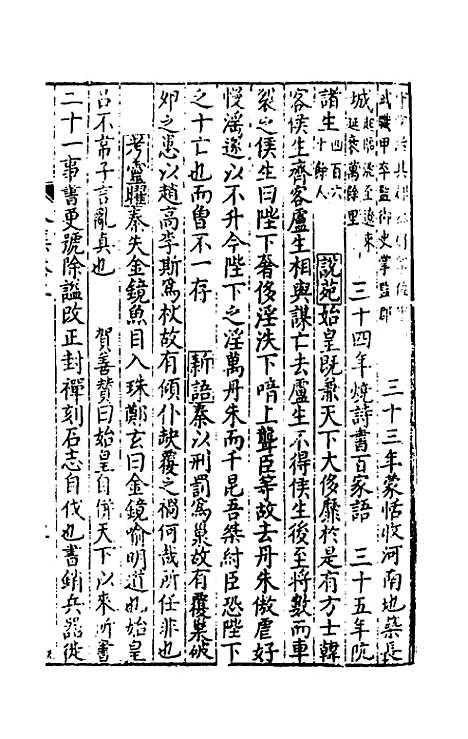 三十三年蒙恬收河南地築長
城 起臨洮至遼東延袤萬餘里 三十四年燒詩書百家語 三十五年阬
諸生 四百六十餘人 說苑始皇既兼天下大侈靡於是有方士韓
客侯生齊客盧生相與謀亡去盧生不得侯生後至將數而車
裂之侯生曰陛下奢侈淫泆下喑上聾臣等故去丹朱傲虐好
慢淫遂以不升今陛下之淫萬丹朱而千昆吾桀紂臣恐陛下
之十亡也而曾不一存 新語秦以刑罰爲巢故有覆巢破
卵之患以趙高李斯爲杖故有傾仆跌覆之禍何哉所任非也
考靈曜秦失金鏡魚目入珠鄭玄曰金鏡喻明道也始皇
呂不韋子言亂真也 賀善贊曰始皇自倂天下以來所書
二十一事書更號除謚改正封禪刻石志自伐也書銷兵器徙